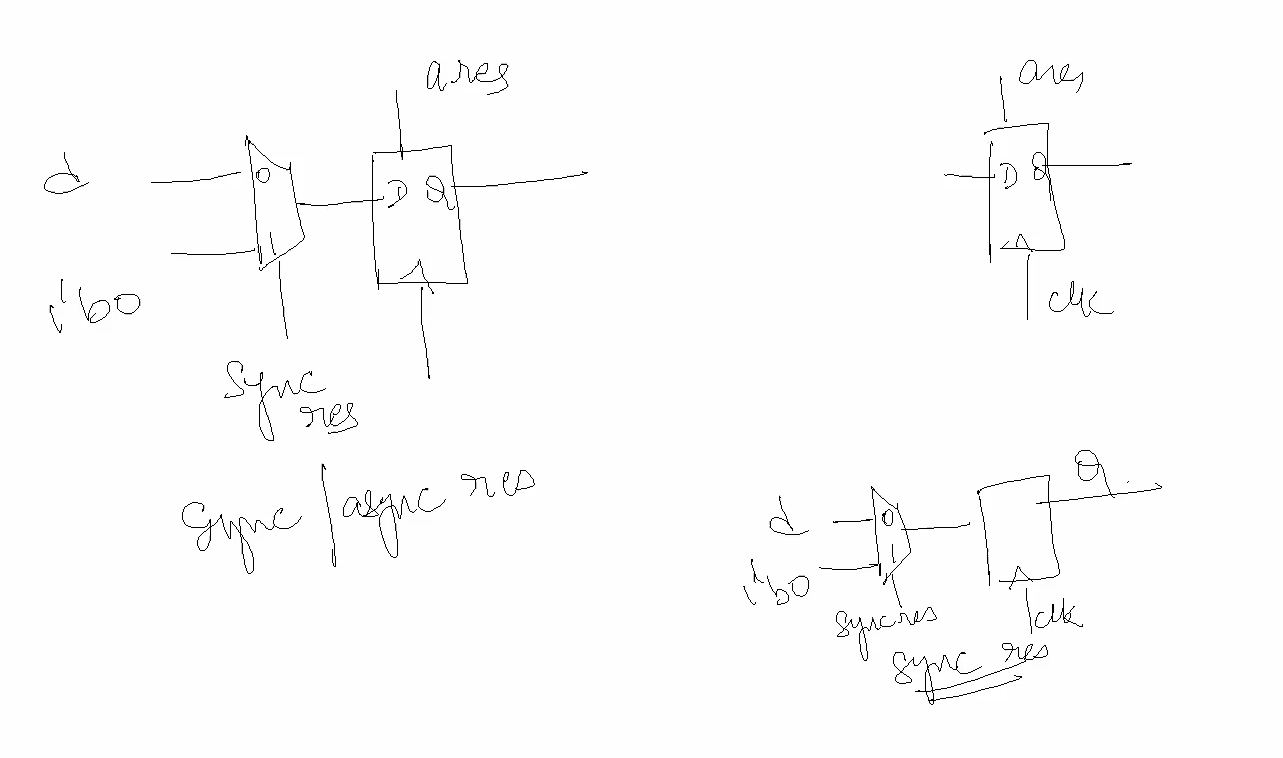 ares
d
0
D Q
1
1'b0
sync
res
sync / async res
ares
D Q
clk
Q
d
0
1
1'b0
syncres
clk
sync res